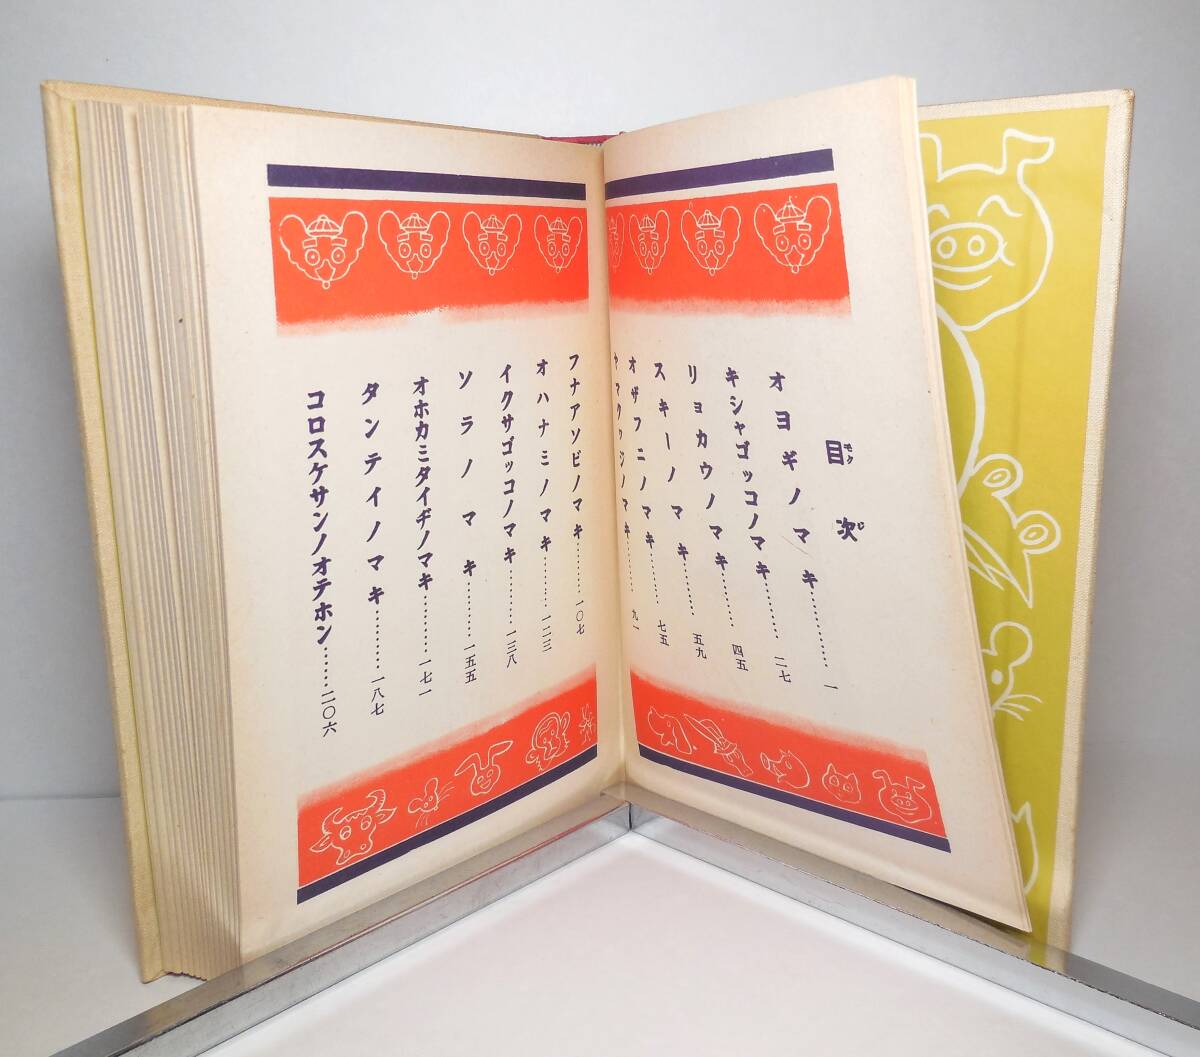 目次
モク
オヨギノマキ…………一
キシャゴッコノマキ…………二七
リョカウノマキ…………四五
スキーノマキ…………五九
オザフニノマキ…………七五
ノマキ…………九一
フナアソビノマキ…………一〇七
オハナミノマキ…………一二三
イクサゴッコノマキ…………一三八
ソラノマキ…………一五五
オホカミタイヂノマキ…………一七一
タンテイノマキ…………一八七
コロスケサンノオテホン……二〇六